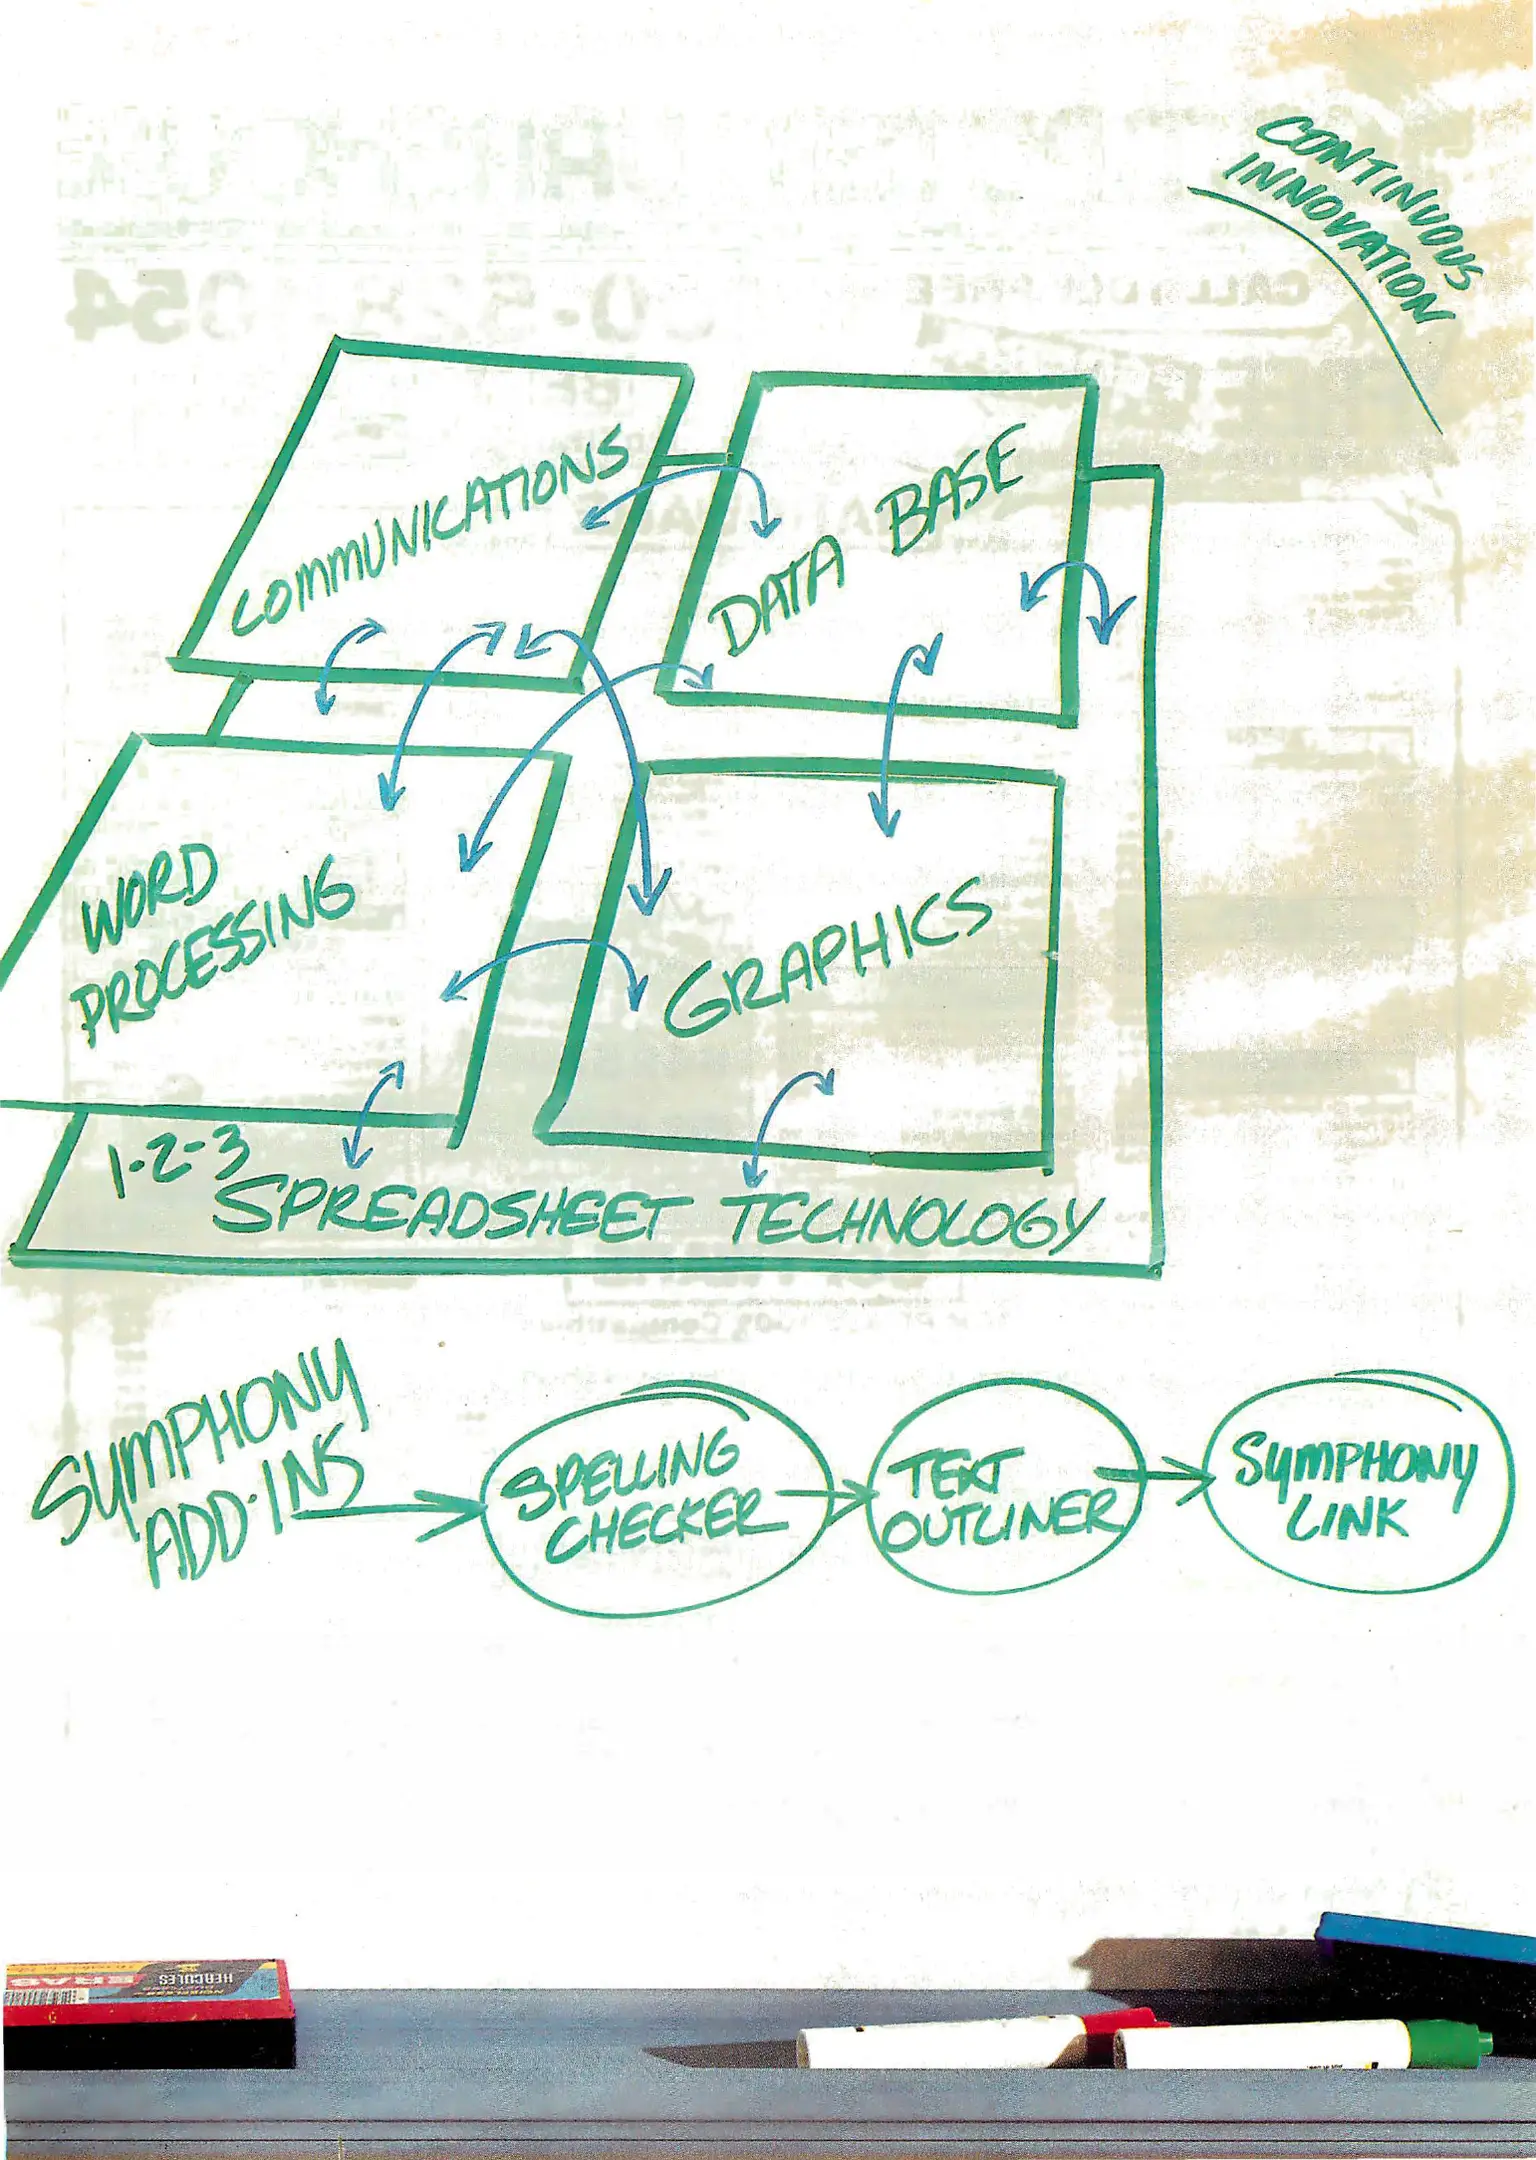 CONTINUOUS
INNOVATION
COMMUNICATIONS
DATA BASE
WORD
PROCESSING
GRAPHICS
1-2-3
SPREADSHEET TECHNOLOGY
SYMPHONY
ADD-INS
SPELLING
CHECKER
TEXT
OUTLINER
SYMPHONY
LINK
HERCULES